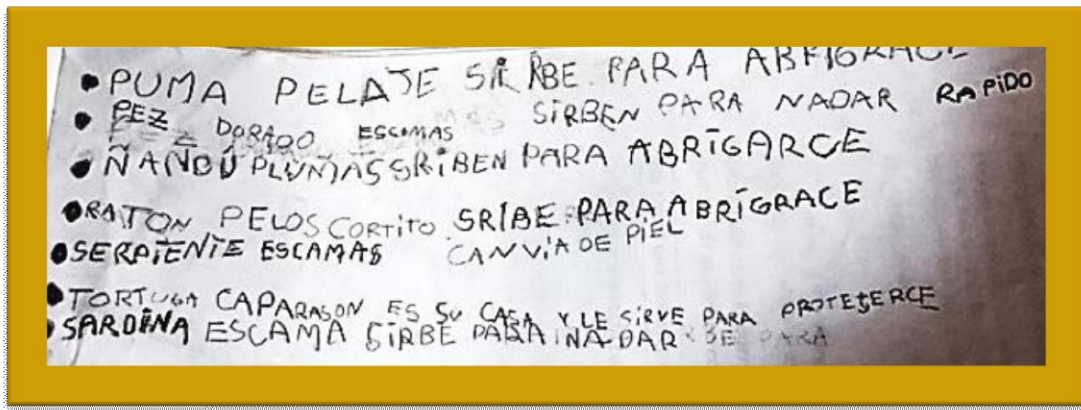 • PUMA PELAJE SIRBE PARA ABRIGRACE
• PEZ DORADO ESCAMAS SIRBEN PARA NADAR RAPIDO
• ÑANDÚ PLUMAS SRIBEN PARA ABRIGARCE
• RATON PELOS CORTITO SRIBE PARA ABRIGRACE
• SERPIENTE ESCAMAS CANVIA DE PIEL
• TORTUGA CAPARASON ES SU CASA Y LE SIRVE PARA PROTEJERCE
• SARDINA ESCAMA SIRBE PARA NADAR